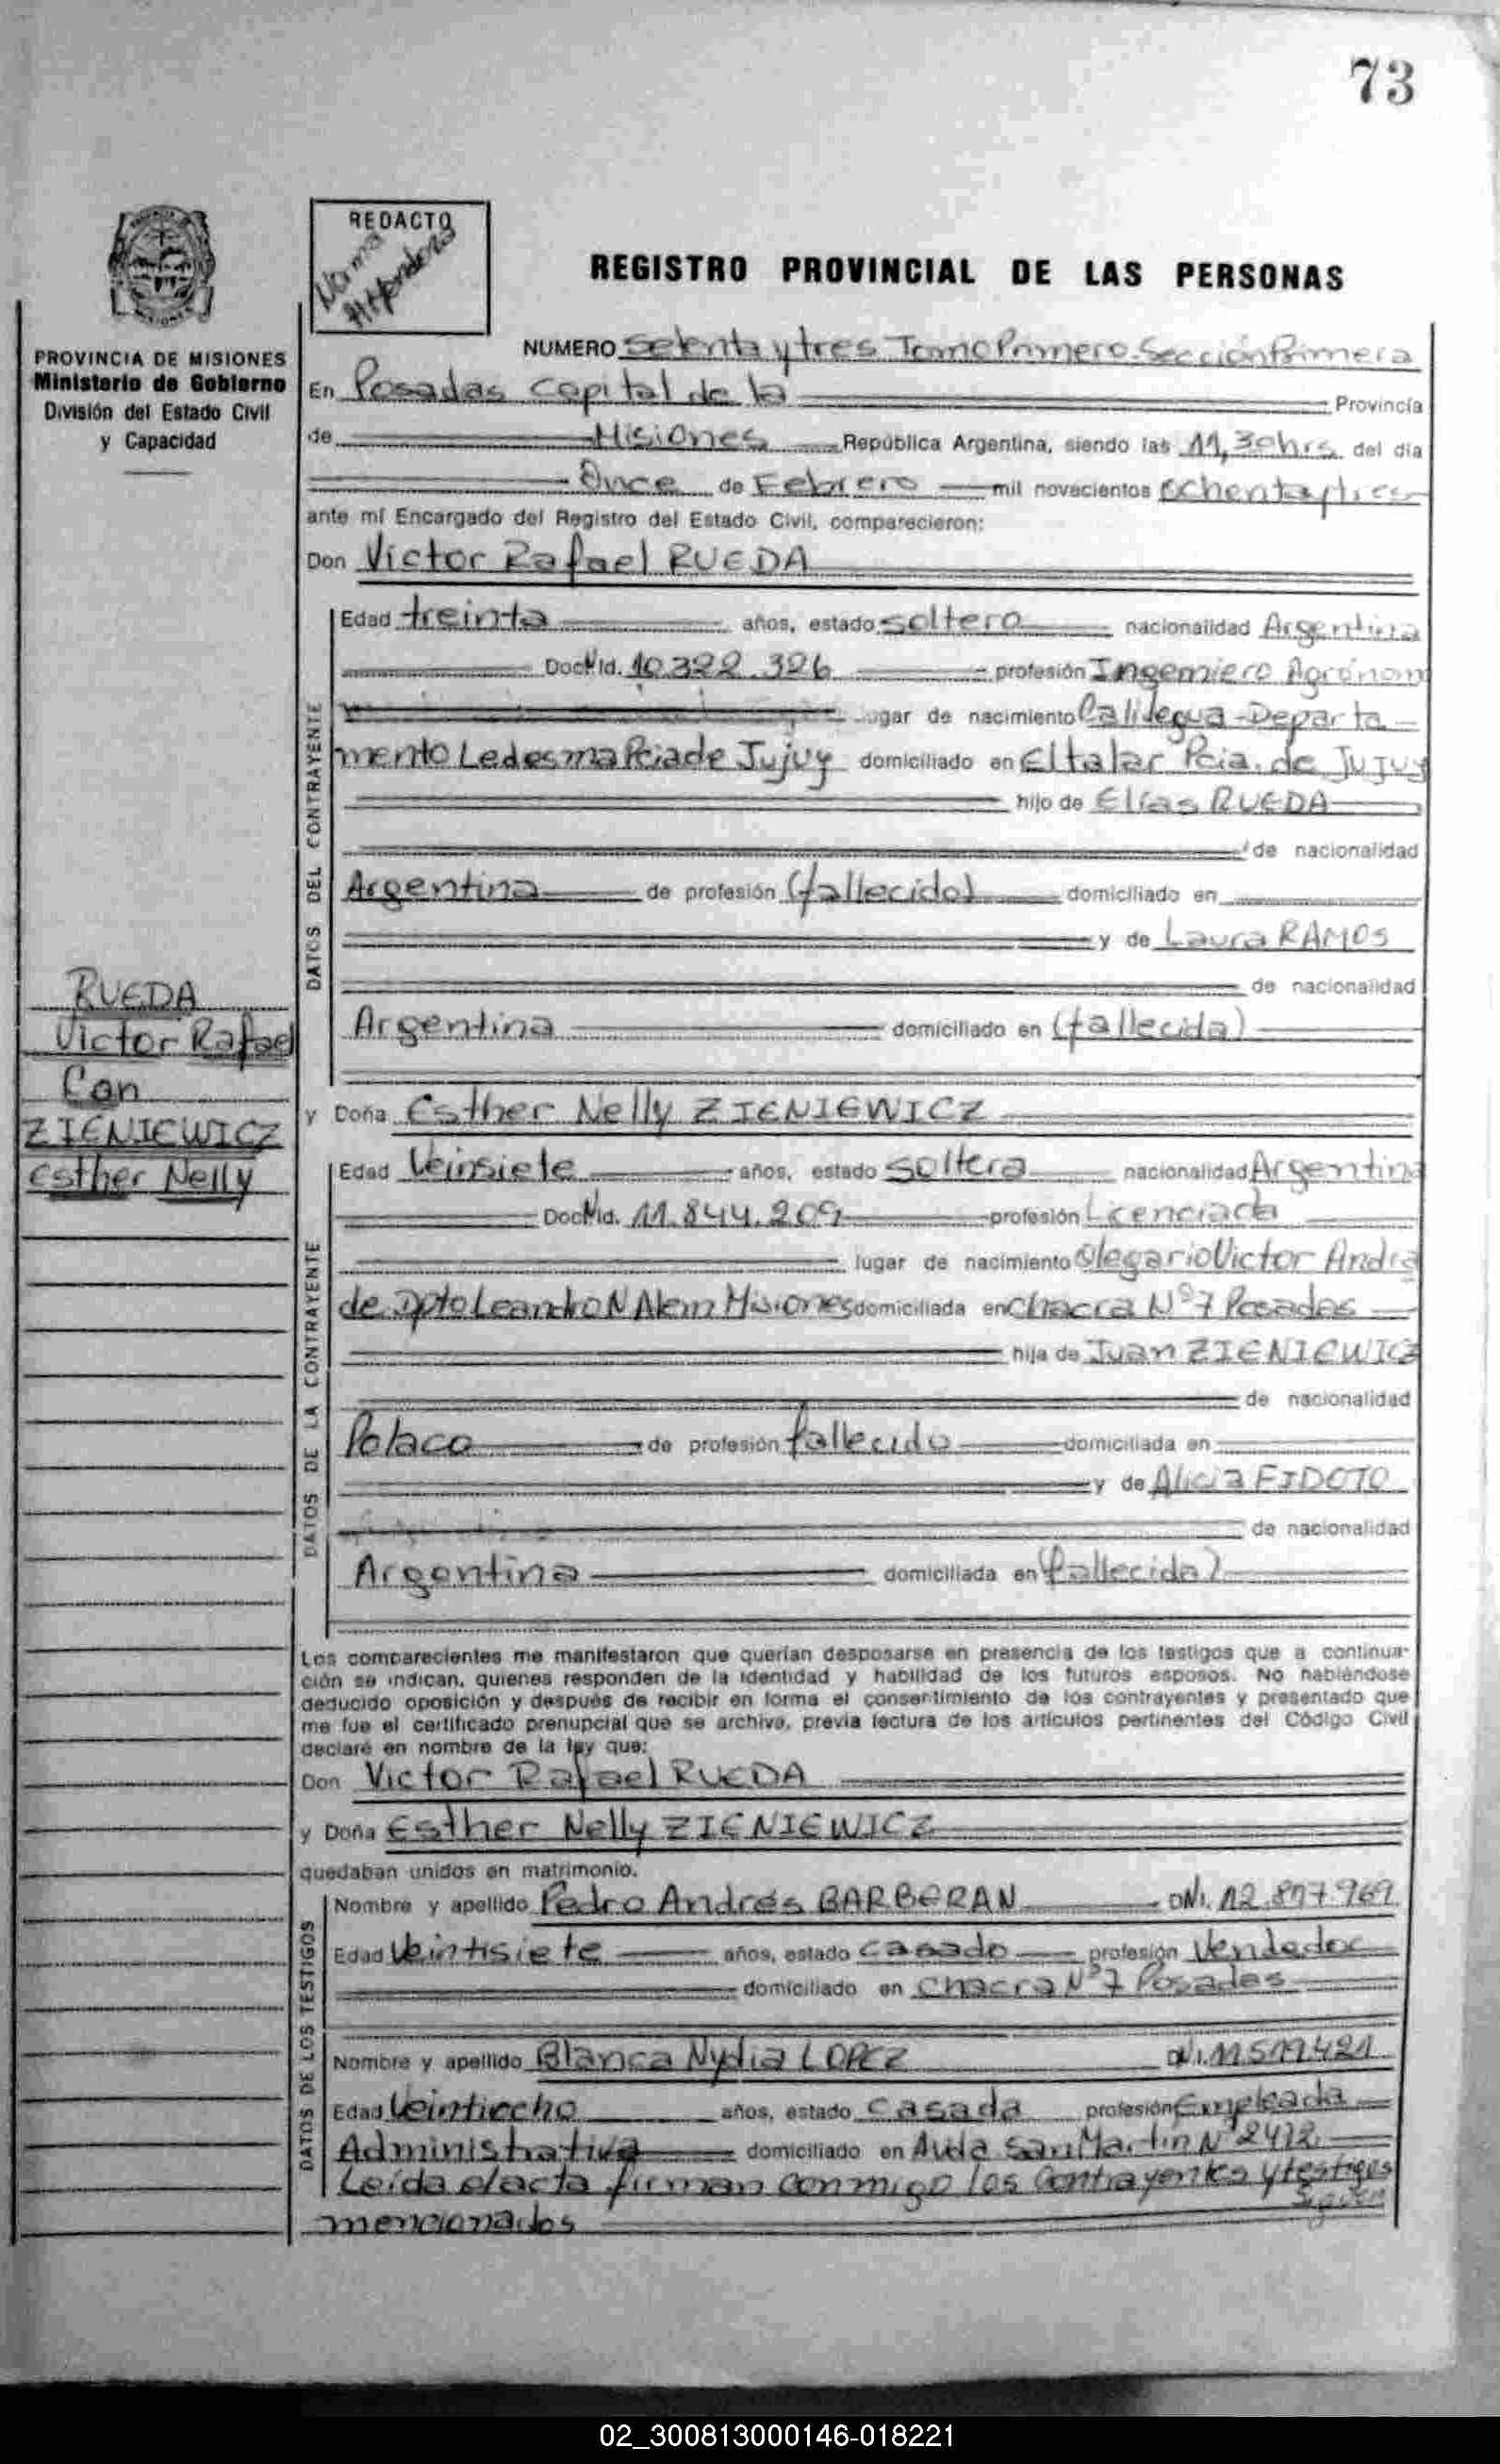 73
REDACTO
Norma
REGISTRO PROVINCIAL DE LAS PERSONAS
PROVINCIA DE MISIONES
Ministerio de Gobierno
División del Estado Civil
y Capacidad
NUMERO Setenta y tres Tomo Primero Sección Primera
En Posadas Capital de la Provincia
de Misiones República Argentina, siendo las 11,30hrs del día
Once de Febrero mil novecientos ochenta y tres
ante mí Encargado del Registro del Estado Civil, comparecieron:
Don Victor Rafael RUEDA
DATOS DEL CONTRAYENTE
Edad treinta años, estado soltero nacionalidad Argentina
Doc Nid. 10.322.326 profesión Ingeniero Agrónom
lugar de nacimiento Calilegua-Departa
mento Ledesma Pcia de Jujuy domiciliado en El talar Pcia. de Jujuy
hijo de Elías RUEDA
de nacionalidad
Argentina de profesión (fallecido) domiciliado en
y de Laura RAMOS
de nacionalidad
Argentina domiciliado en (fallecida)
RUEDA
Victor Rafael
Con
ZIENIEWICZ
Esther Nelly
y Doña Esther Nelly ZIENIEWICZ
DATOS DE LA CONTRAYENTE
Edad Veinsiete años, estado Soltera nacionalidad Argentina
Doc Nid. 11.844.209 profesión Licenciada
lugar de nacimiento Olegario Victor Andra
de Dpto Leandro N Alem Misiones domiciliada en Chacra Nº7 Posadas
hija de Juan ZIENIEWICZ
de nacionalidad
Polaco de profesión fallecido domiciliada en
y de Alicia FIDOTO
de nacionalidad
Argentina domiciliada en (fallecida)
Los comparecientes me manifestaron que querían desposarse en presencia de los testigos que a continua-
ción se indican, quienes responden de la identidad y habilidad de los futuros esposos. No habiéndose
deducido oposición y después de recibir en forma el consentimiento de los contrayentes y presentado que
me fue el certificado prenupcial que se archiva, previa lectura de los artículos pertinentes del Código Civil
declaré en nombre de la ley que:
Don Victor Rafael RUEDA
y Doña Esther Nelly ZIENIEWICZ
quedaban unidos en matrimonio.
DATOS DE LOS TESTIGOS
Nombre y apellido Pedro Andrés BARBERAN DNI. 12.877.969
Edad Veintisiete años, estado Casado profesión Vendedor
domiciliado en Chacra Nº7 Posadas
Nombre y apellido Blanca Nydia LOPEZ DNI. 11.517.421
Edad Veintiocho años, estado Casada profesión Empleada
Administrativa domiciliado en Avda San Martin Nº 2472
Leída el acta firman conmigo los Contrayentes y testigos
mencionados
02_300813000146-018221